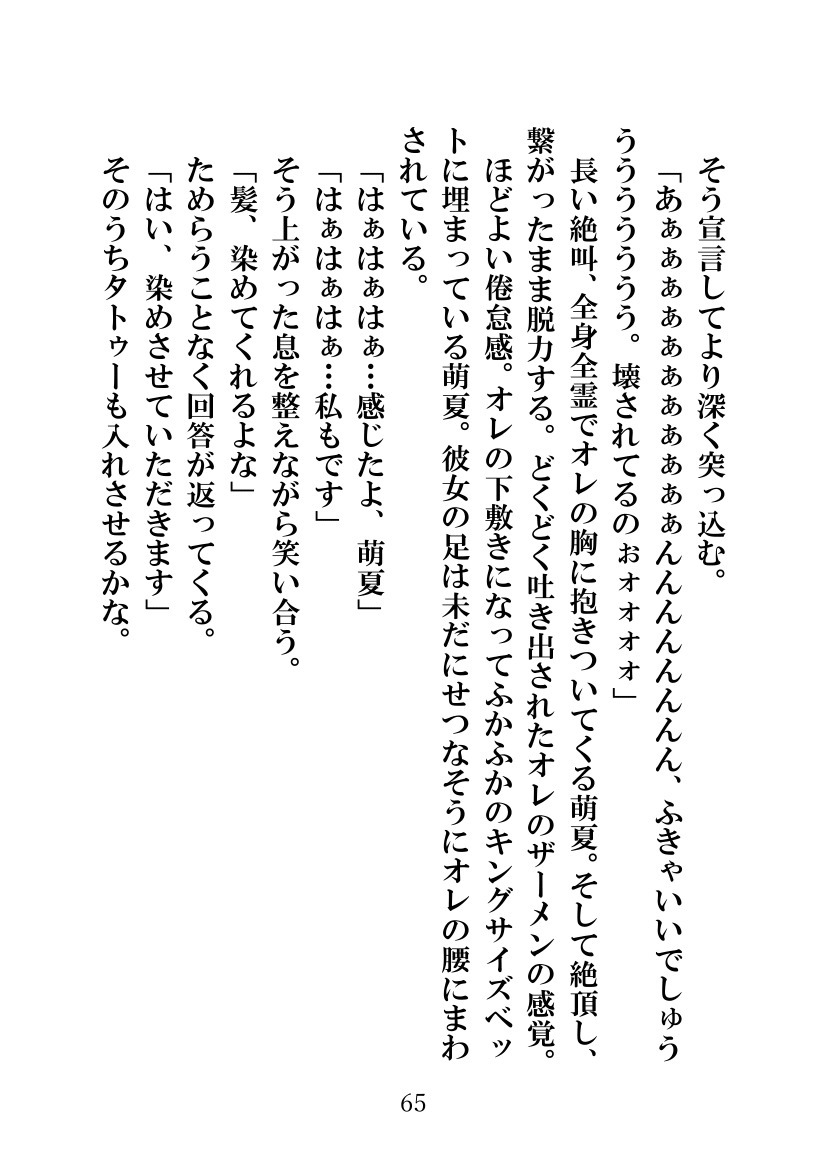 そう宣言してより深く突っ込む。
「あぁぁぁぁぁぁぁぁぁぁぁんんんんんんんん、ふきゃいいでしゅう
ううううううう。壊されてるのぉォォォォ」
長い絶叫、全身全霊でオレの胸に抱きついてくる萌夏。そして絶頂し、
繋がったまま脱力する。どくどく吐き出されたオレのザーメンの感覚。
ほどよい倦怠感。オレの下敷きになってふかふかのキングサイズベッ
トに埋まっている萌夏。彼女の足は未だにせつなそうにオレの腰にまわ
されている。
「はぁはぁはぁ…感じたよ、萌夏」
「はぁはぁはぁ…私もです」
そう上がった息を整えながら笑い合う。
「髪、染めてくれるよな」
ためらうことなく回答が返ってくる。
「はい、染めさせていただきます」
そのうちタトゥーも入れさせるかな。
65